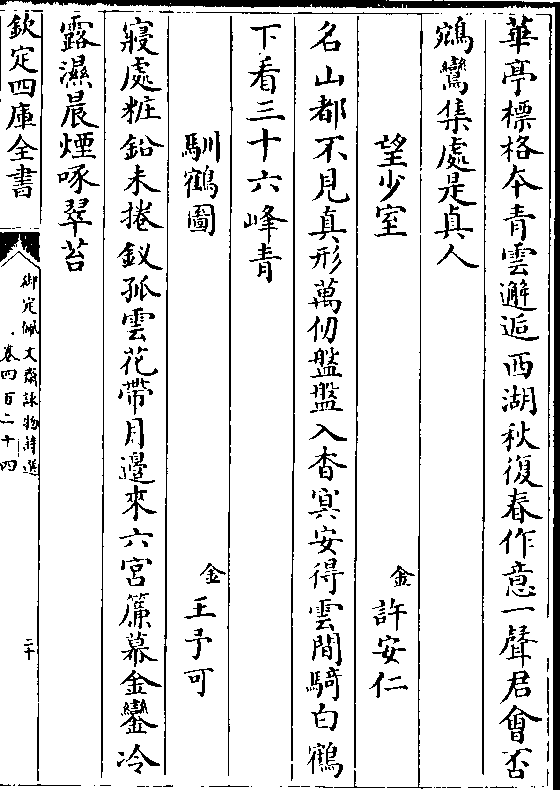 華亭標格本青雲邂逅西湖秋復春作意一聲君會否
鵷鸞集處是真人
望少室
金許安仁
名山都不見真形萬仞盤盤入杳冥安得雲間騎白鶴
下看三十六峰青
馴鶴圖
金王予可
寢處粧鉛未捲釵孤雲花帶月邊來六宮簾幕金鑾冷
露濕晨煙啄翠苔
欽定四庫全書
御定佩文齋詠物詩選
卷四百二十四
二十